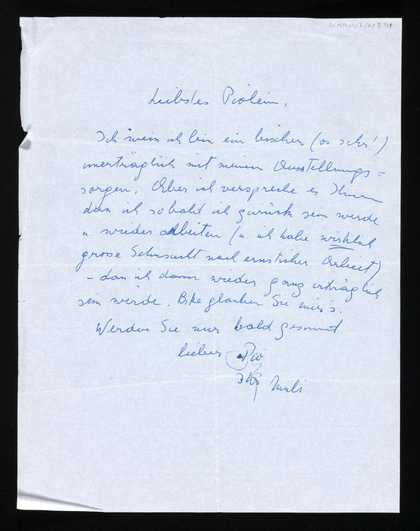 Liebstes Piolein,
Ich weiss ich bin ein bischen (or sehr!)
unerträglich mit meinen Ausstellungs=
sorgen. Aber ich verspreche es Ihnen
dass ich sobald ich zurück sein werde
u wieder arbeiten (u ich habe wirklich
grosse Sehnsucht nach ernstlicher Arbeit)
– dass ich dann wieder ganz erträglich
sein werde. Bitte glauben Sie mir's.
Werden Sie nur bald gesund
lieber Pio
Ihr